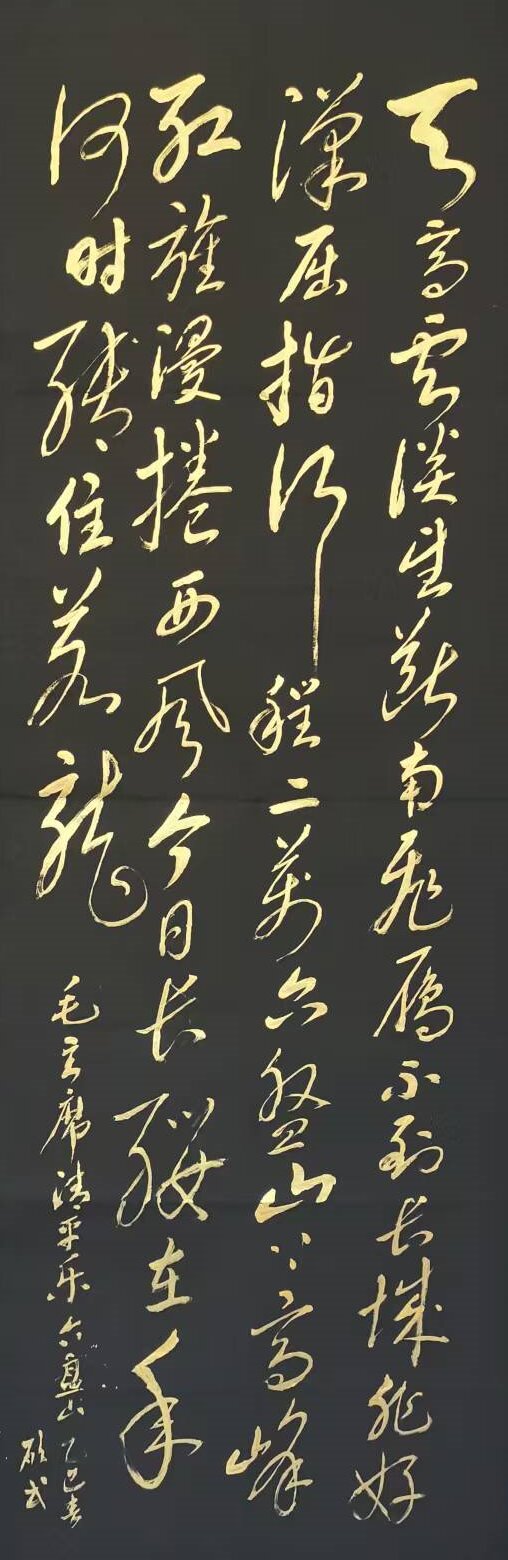 天高云淡望断南飞雁不到长城非好
漢屈指行程二萬六盘山上高峰
红旗漫捲西风今日长缨在手
何时缚住苍龙
毛主席清平乐六盘山 乙巳春